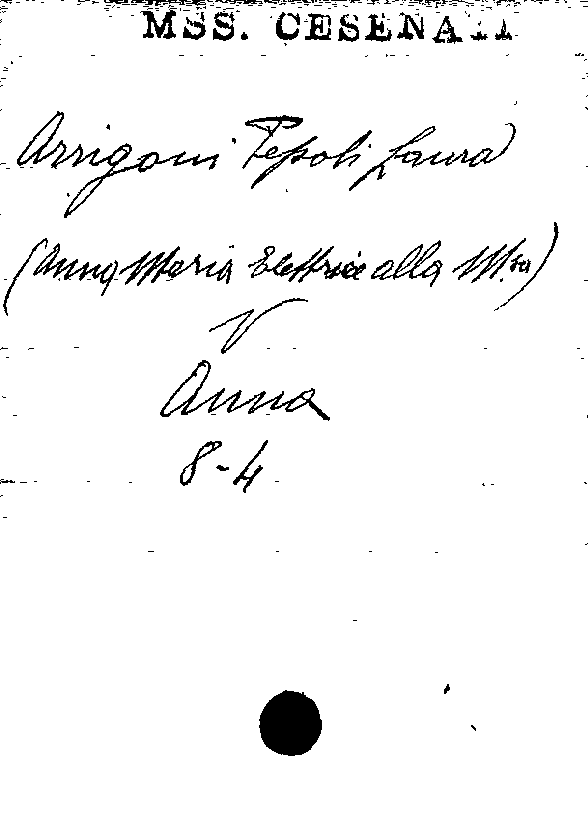 MSS. CESENATI
Arrigoni Pepoli Laura
(Anna Maria Elettrice alla M.sa)
V
Anna
8-4